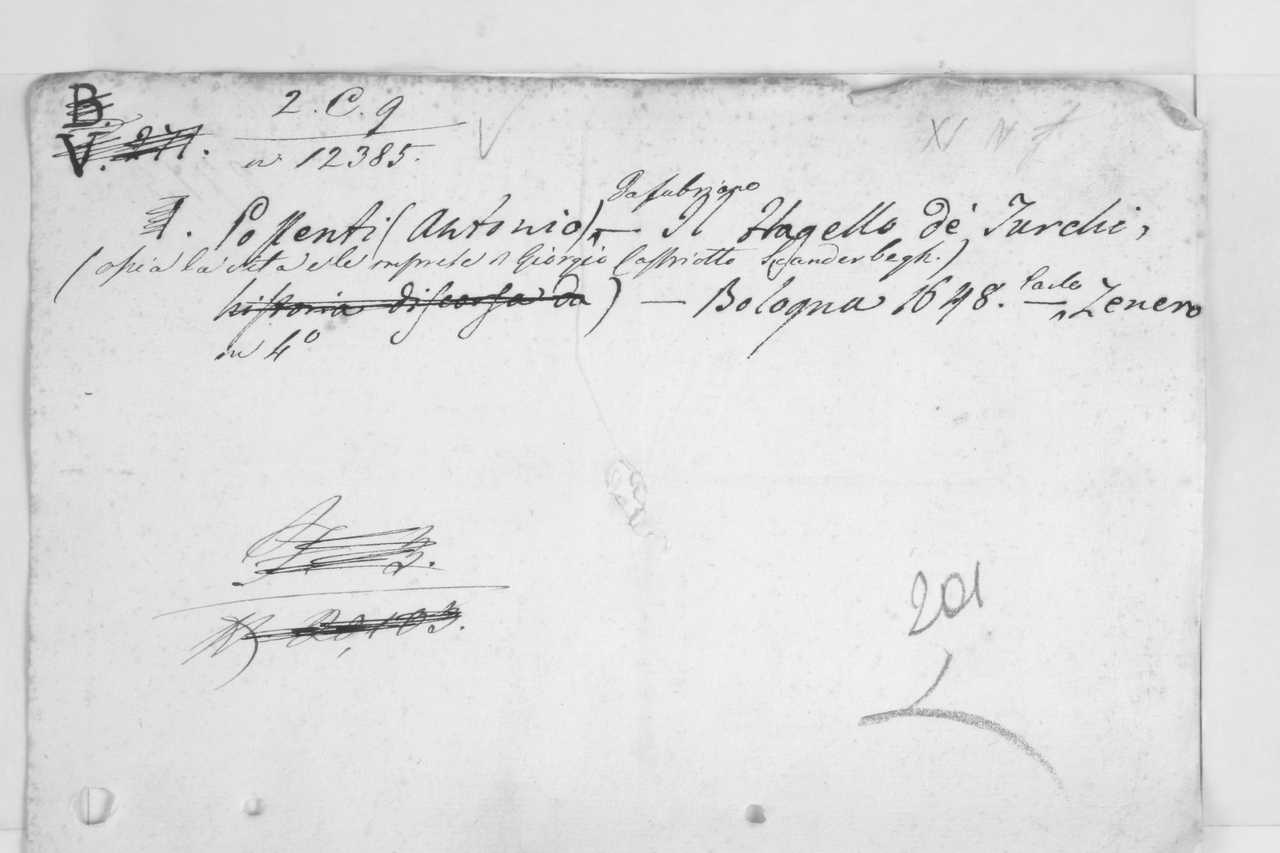 B. 2. C. 9
V. n 12385.
1. Possenti (Antonio) da fabriano — Il flagello de' Turchi,
(ossia la vita e le imprese di Giorgio Castriotto Scanderbegh.)
historia discorsa da) — Bologna 1648. — Carlo Zenero
in 4º
2.
201